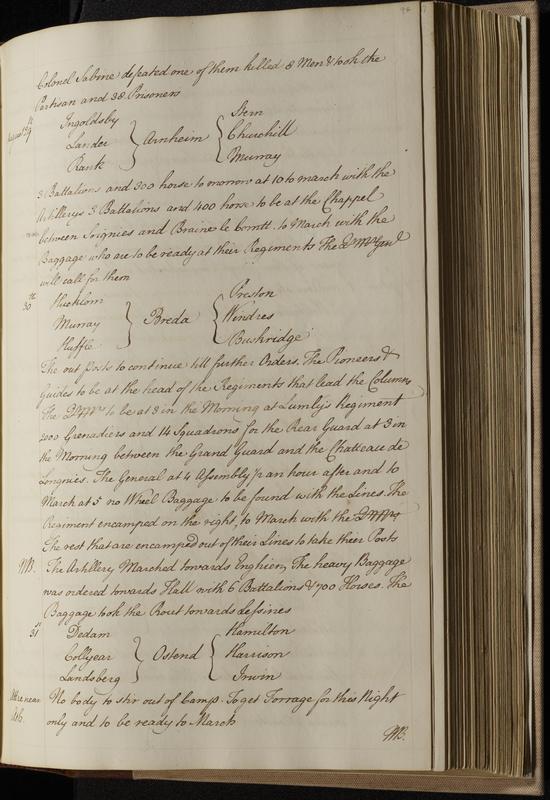 Colonel Sabine defeated one of them killed 8 Men & took the
Partisan and 38 Prisoners
August 29th
Ingoldsby
Lander
Rank
Arnheim
Stern
Churchill
Murray
3 Battalions and 300 horse to morrow at 10 to march with the
Artillerys 3 Battalions and 400 horse to be at the Chappel
between Soignies and Braine le Comtt. to March with the
Baggage who are to be ready at their Regiments The Q Mr Genl
will call for them
30th
Murray
Huffle
Breda
Preston
Windres
Bushridge
The out posts to continue till further Orders. The Pioneers &
Guides to be at the head of the Regiments that lead the Columns
The Q Mrs to be at 3 in the Morning at Lumly's Regiment
2000 Grenadiers and 14 Squadrons for the Rear Guard at 3 in
the Morning between the Grand Guard and the Chatteau de
Longnies. The General at 4 Assembly ½ an hour after and to
March at 5 no Wheel Baggage to be found with the Lines. The
Regiment encamped on the right, to March with the Q Mrs
The rest that are encamped out of their Lines to take their Posts
NB. The Artillery Marched towards Enghien, The heavy Baggage
was ordered towards Hall with 6 Battalions & 700 Horses. The
Baggage took the Rout towards dessines
31st
Dedam
Collyear
Landsberg
Ostend
Hamilton
Harrison
Irwin
No body to stir out of Camp. To get Forrage for this Night
only and to be ready to March
NB.